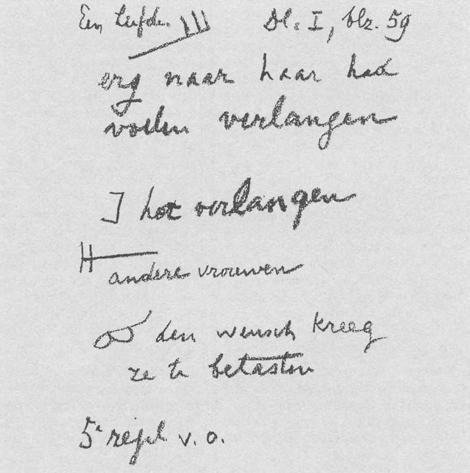 Een liefde. Dl. I, blz. 59
erg naar haar had
voelen verlangen
het verlangen
andere vrouwen
den wensch kreeg
ze te betasten
5e regel v. o.